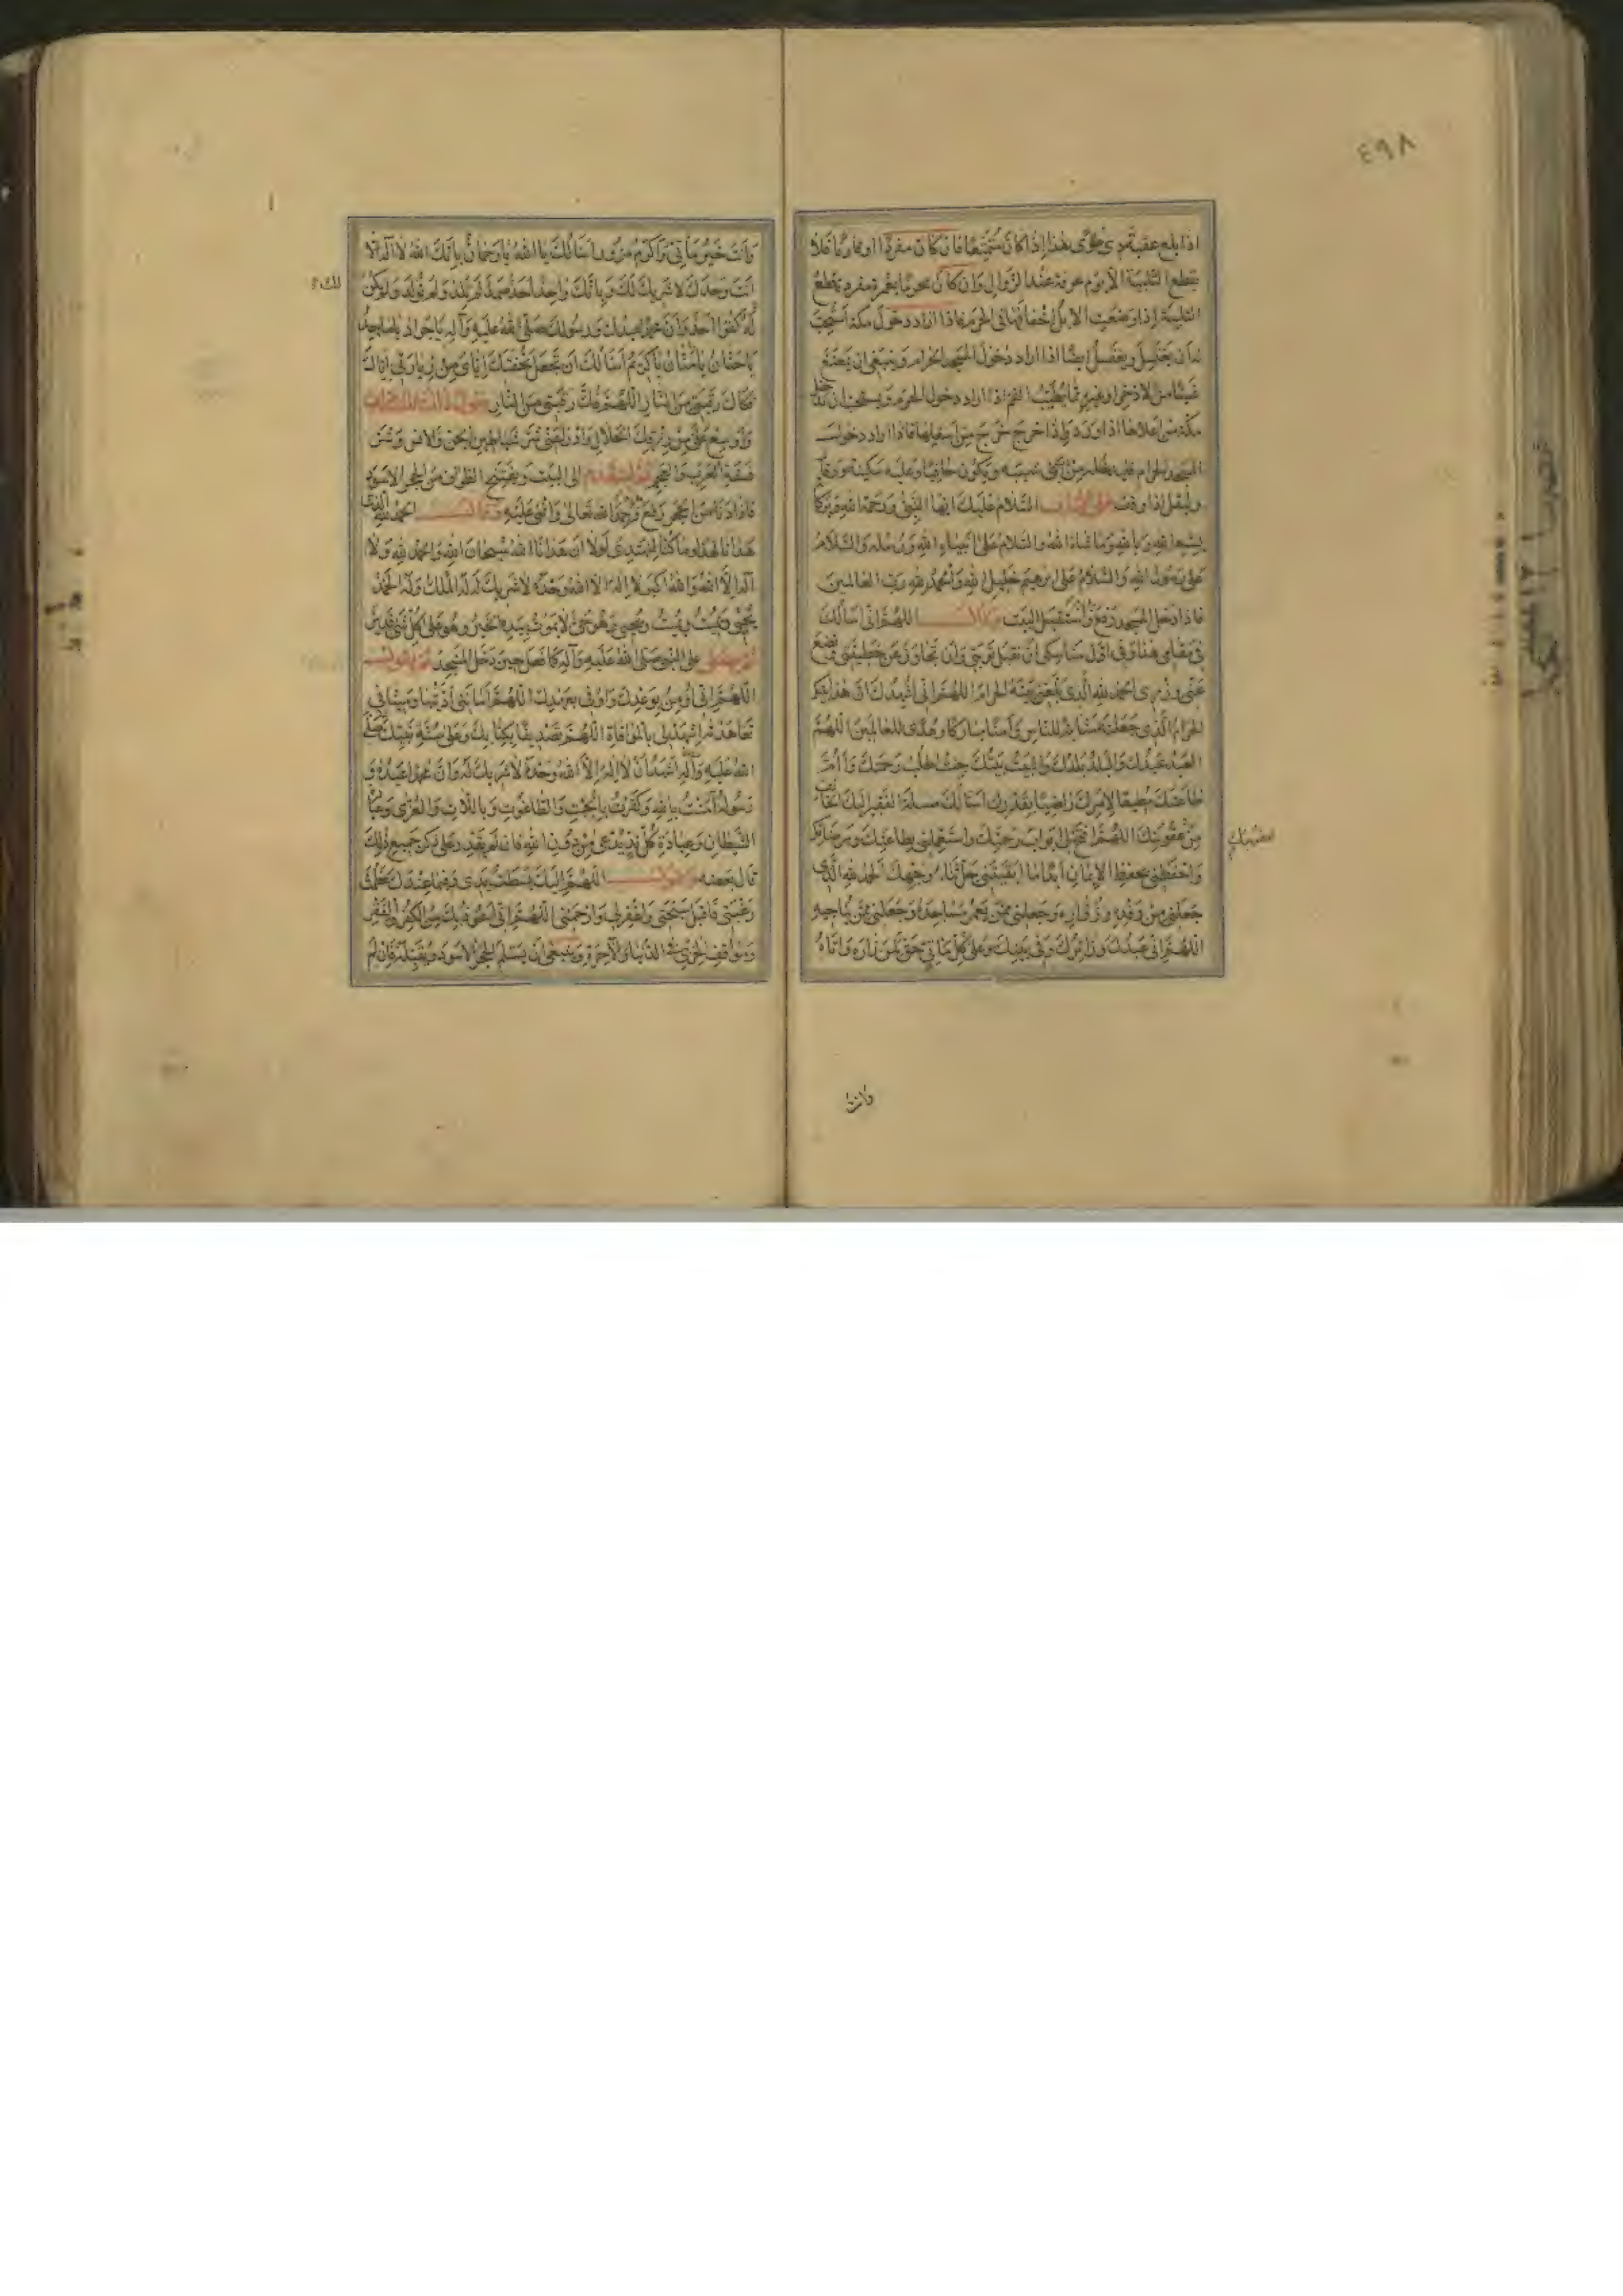 ٤٩٨
اذا بلغ عقبة ذى طوى هذا اذا كان متمتعا فان كان مفردا او قارنا فلا
يقطع التلبية الا يوم عرفة عند الزوال وان كان محرما بعمرة مفردة يقطع
التلبية اذا وضعت الابل اخفافها فى الحرم فاذا اراد دخول مكة استحب
له ان يغتسل ويغتسل ايضا اذا اراد دخول المسجد الحرام وينبغى ان يمضغ
شيئا من الاذخر او غيره مما يطيب الفم اذا اراد دخول الحرم ويستحب ان يدخل
مكة من اعلاها اذا ورد واذا خرج خرج من اسفلها فاذا اراد دخول
المسجد الحرام فليدخله من باب بنى شيبه ويكون حافيا وعليه سكينة ووقار
وليقل اذا وقف على الباب السلام عليك ايها النبى ورحمة الله وبركاته
بسم الله وبالله وما شاء الله والسلام على انبياء الله ورسله والسلام
على رسول الله والسلام على ابرهيم خليل الله والحمد لله رب العالمين
فاذا دخل المسجد رفع يديه واستقبل البيت وقال اللهم انى اسألك
فى مقامى هذا وفى اول مناسكى ان تقبل توبتى وان تجاوز عن خطيئتى وتضع
عنى وزرى الحمد لله الذى بلغنى بيته الحرام اللهم انى اشهدك ان هذا بيتك
الحرام الذى جعلته مثابة للناس وامنا مباركا وهدى للعالمين اللهم
العبد عبدك والبلد بلدك والبيت بيتك جئت اطلب رحمتك واؤم
طاعتك مطيعا لامرك راضيا بقدرك اسألك مسئلة الفقير اليك الخائف
من عقوبتك اللهم افتح لى ابواب رحمتك واستعملنى بطاعتك ومرضاتك
واحفظنى بحفظ الايمان ابدا ما ابقيتنى جل ثناء وجهك الحمد لله الذى
جعلنى من وفده وزواره وجعلنى ممن يعمر مساجده وجعلنى ممن يناجيه
اللهم انى عبدك وزائرك وفى بيتك وعلى كل ماتى حق لمن زاره واتاه
وانت
وانت خير ماتى واكرم مزور اسألك يا الله يا رحمان بانك الله لا اله الا
انت وحدك لا شريك لك وبانك واحد احد صمد لم تلد ولم تولد ولم يكن
له كفوا احد وان محمدا عبدك ورسولك صلى الله عليه وآله يا جواد يا ماجد
يا حنان يا منان يا كريم اسألك ان تجعل تحفتك اياى من زيارتى اياك
فكاك رقبتى من النار اللهم فك رقبتى من النار يقول ذلك ثلاث مرات
واوسع على من رزقك الحلال وادرأ عنى شر شياطين الجن والانس وشر
فسقة العرب والعجم ثم ليتقدم الى البيت ويفتتح الطواف من الحجر الاسود
فاذا دنا من الحجر رفع يديه وحمد الله تعالى واثنى عليه وقال الحمد لله الذى
هدانا لهذا وما كنا لنهتدى لولا ان هدانا الله سبحان الله والحمد لله ولا
اله الا الله والله اكبر لا اله الا الله وحده لا شريك له له الملك وله الحمد
يحيى ويميت ويميت ويحيى وهو حى لا يموت بيده الخير وهو على كل شئ قدير
ثم يصلى على النبى صلى الله عليه وآله كما فعل حين دخل المسجد ثم يقول
اللهم انى اومن بوعدك واوفى بعهدك اللهم امانتى اديتها وميثاقى
تعاهدته لتشهد لى بالموافاة اللهم تصديقا بكتابك وعلى سنة نبيك صلى
الله عليه وآله اشهد ان لا اله الا الله وحده لا شريك له وان محمدا عبده و
رسوله آمنت بالله وكفرت بالجبت والطاغوت وباللات والعزى وعبادة
الشيطان وعبادة كل ند يدعى من دون الله فان لم يقدر على ذكر جميع ذلك
قال بعضه ويقول اللهم اليك بسطت يدى وفيما عندك عظمت
رغبتى فاقبل سبحتى واغفر لى وارحمنى اللهم انى اعوذ بك من الكفر والفقر
ومواقف الخزى فى الدنيا والآخرة وينبغى ان يستلم الحجر الاسود ويقبله فان لم